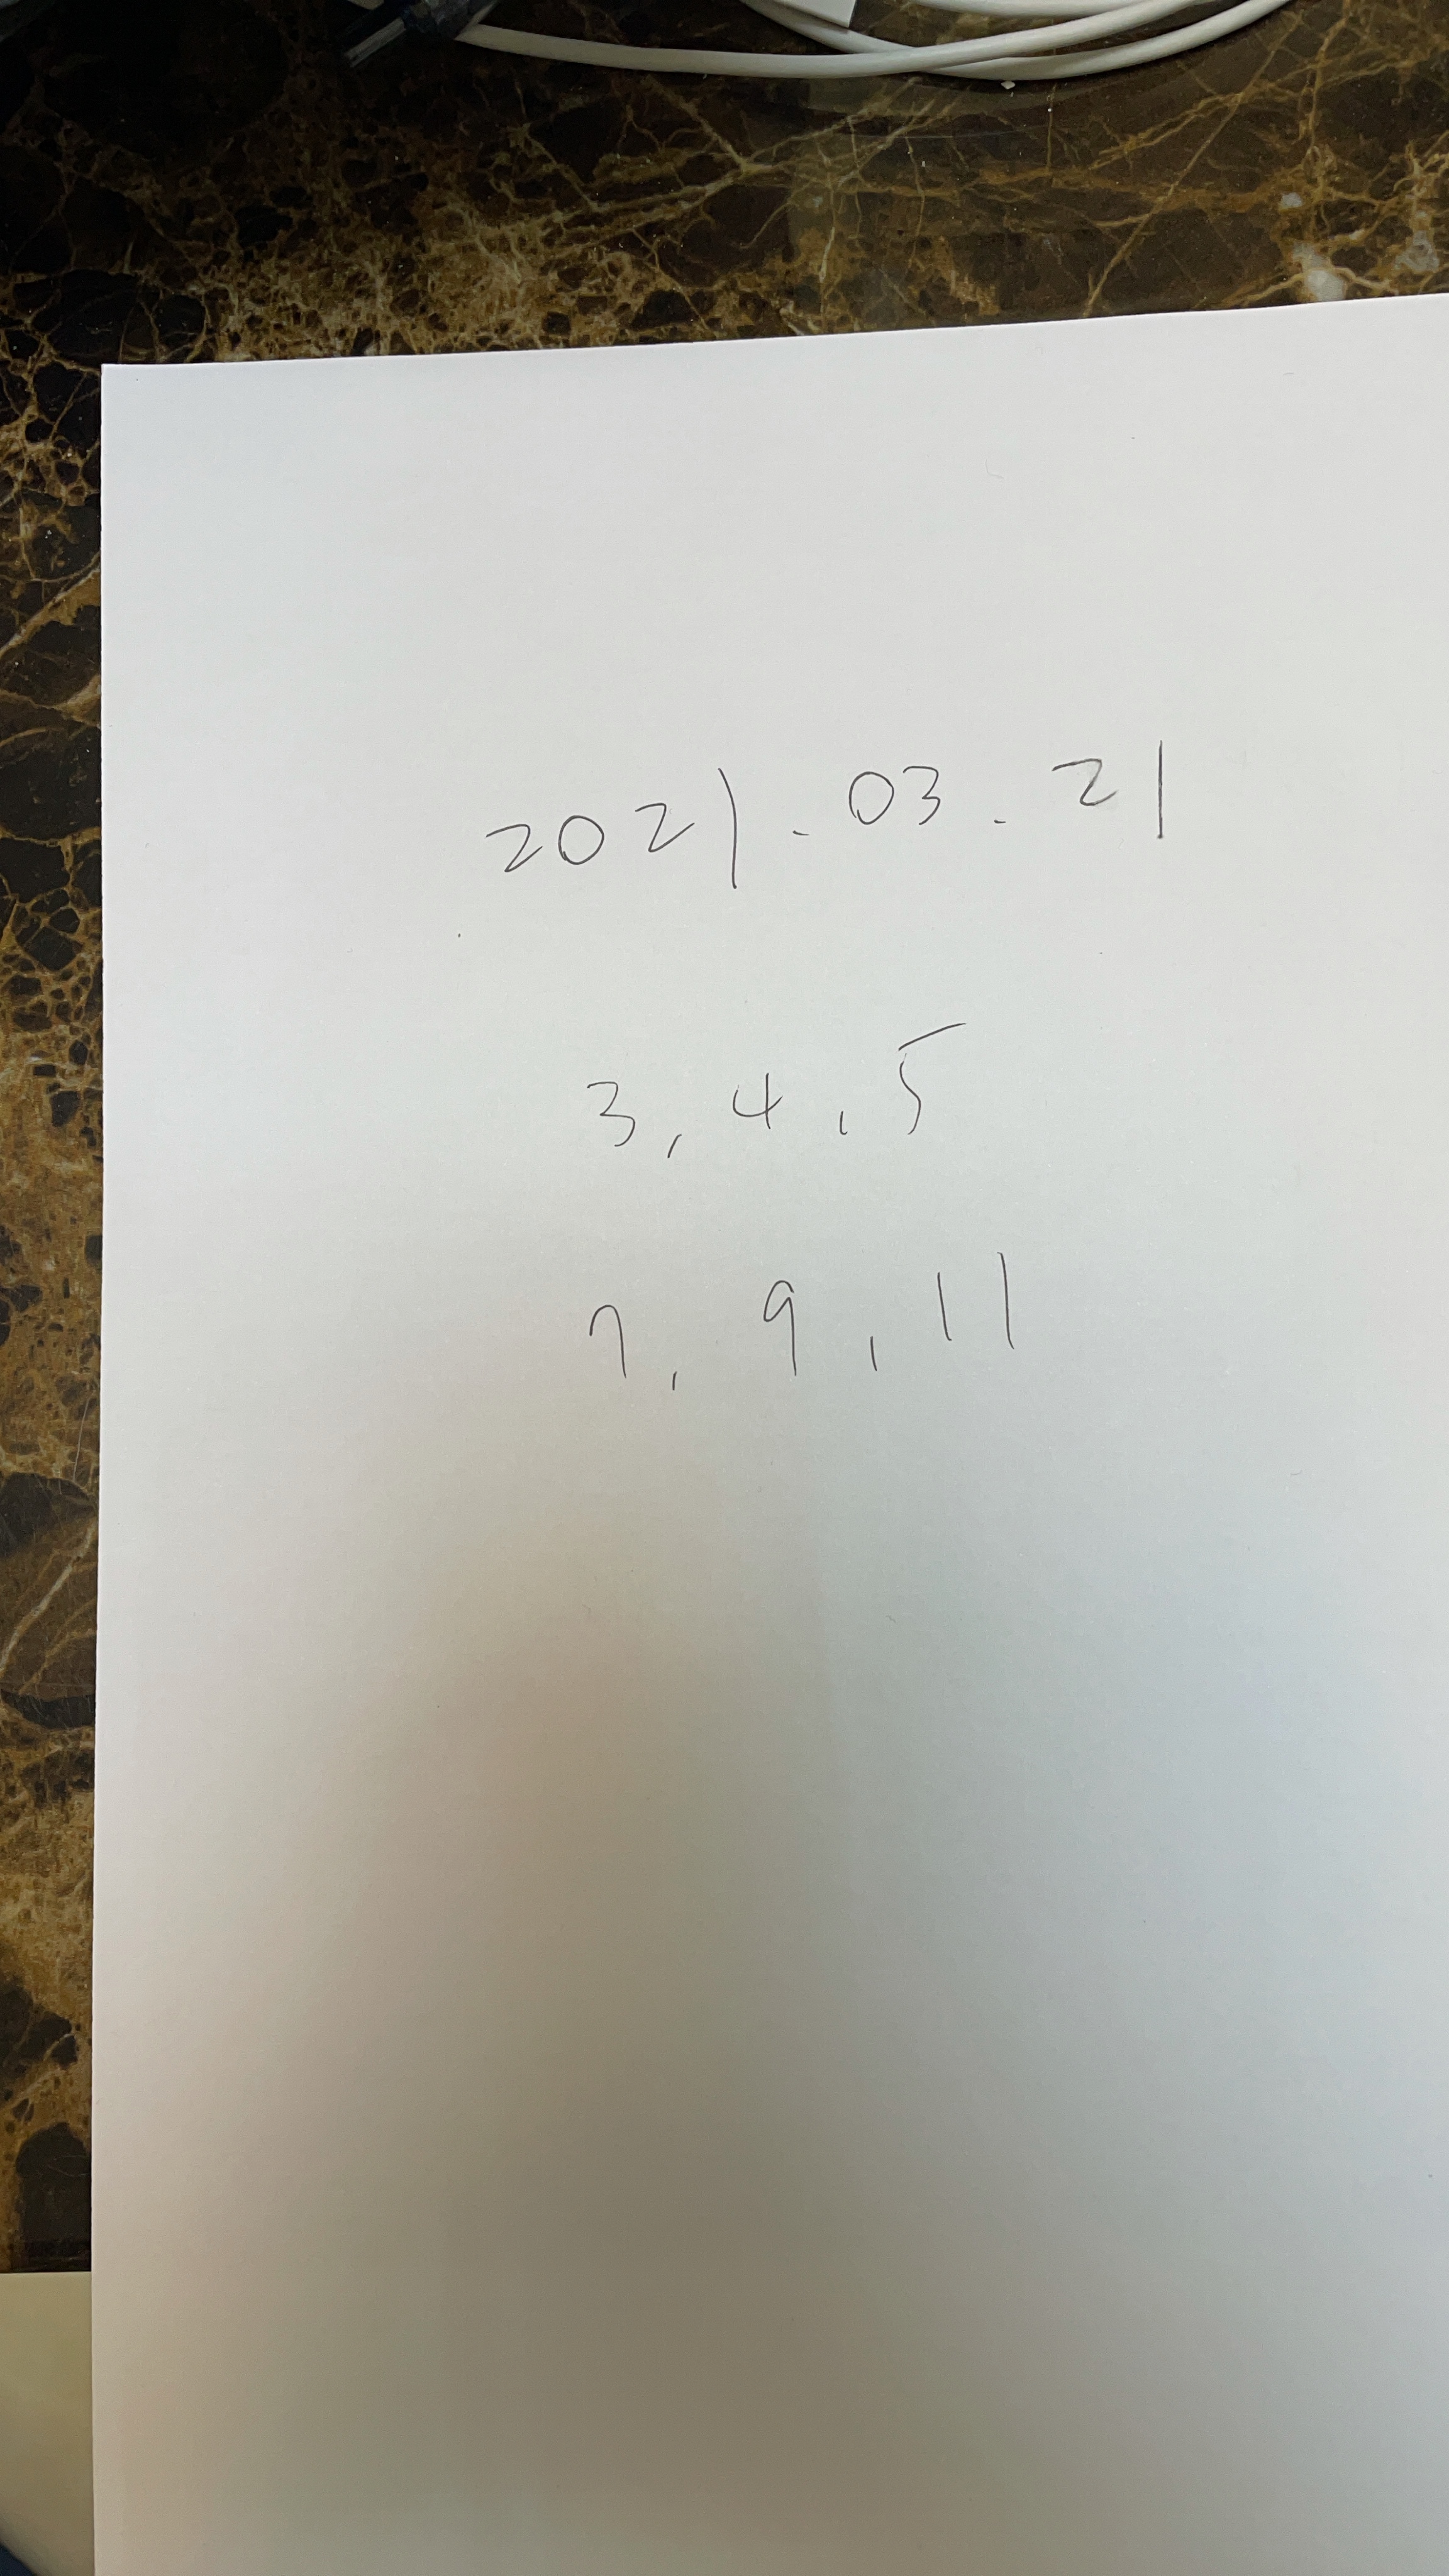 2021.03.21
3, 4, 5
7, 9, 11